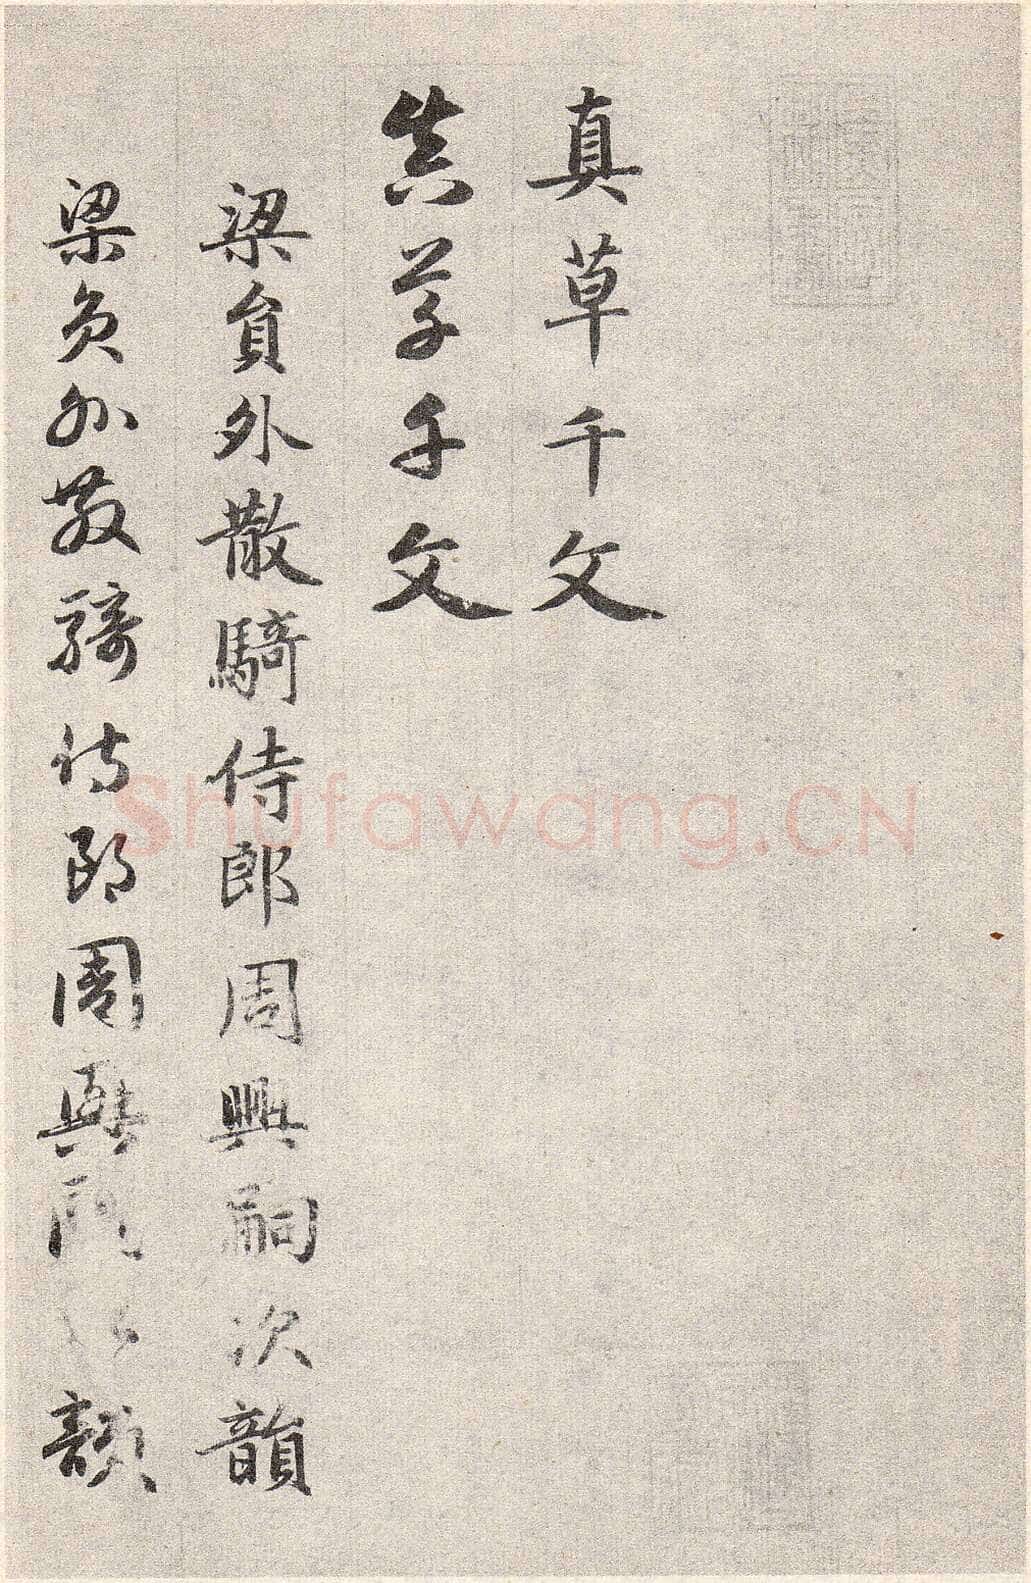 真草千文
真草千文
梁員外散騎侍郎周興嗣次韻
梁員外散騎侍郎周興嗣次韻
Shufawang.CN